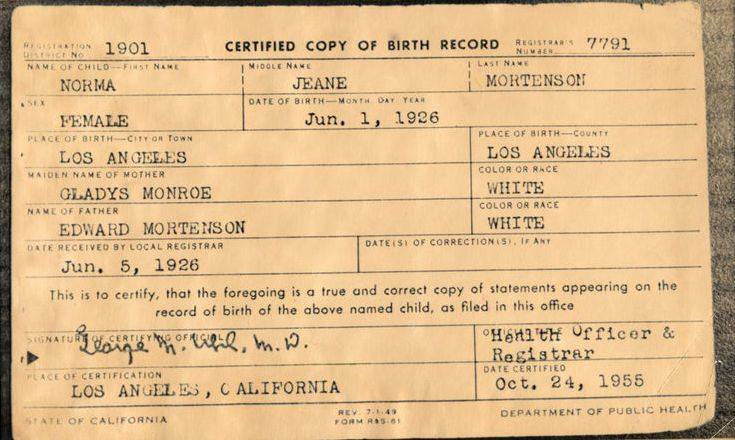 REGISTRATION DISTRICT NO. 1901 CERTIFIED COPY OF BIRTH RECORD REGISTRAR'S NUMBER 7791
NAME OF CHILD—FIRST NAME MIDDLE NAME LAST NAME
NORMA JEANE MORTENSON
SEX DATE OF BIRTH—MONTH DAY YEAR
FEMALE Jun. 1, 1926
PLACE OF BIRTH—CITY OR TOWN PLACE OF BIRTH—COUNTY
LOS ANGELES LOS ANGELES
MAIDEN NAME OF MOTHER COLOR OR RACE
GLADYS MONROE WHITE
NAME OF FATHER COLOR OR RACE
EDWARD MORTENSON WHITE
DATE RECEIVED BY LOCAL REGISTRAR DATE(S) OF CORRECTION(S), IF ANY
Jun. 5, 1926
This is to certify, that the foregoing is a true and correct copy of statements appearing on the
record of birth of the above named child, as filed in this office
SIGNATURE OF CERTIFYING OFFICIAL
George M. Uhl, M.D. Health Officer &
Registrar
PLACE OF CERTIFICATION DATE CERTIFIED
LOS ANGELES, CALIFORNIA Oct. 24, 1955
STATE OF CALIFORNIA REV. 7-1-49 DEPARTMENT OF PUBLIC HEALTH
FORM R&S-61